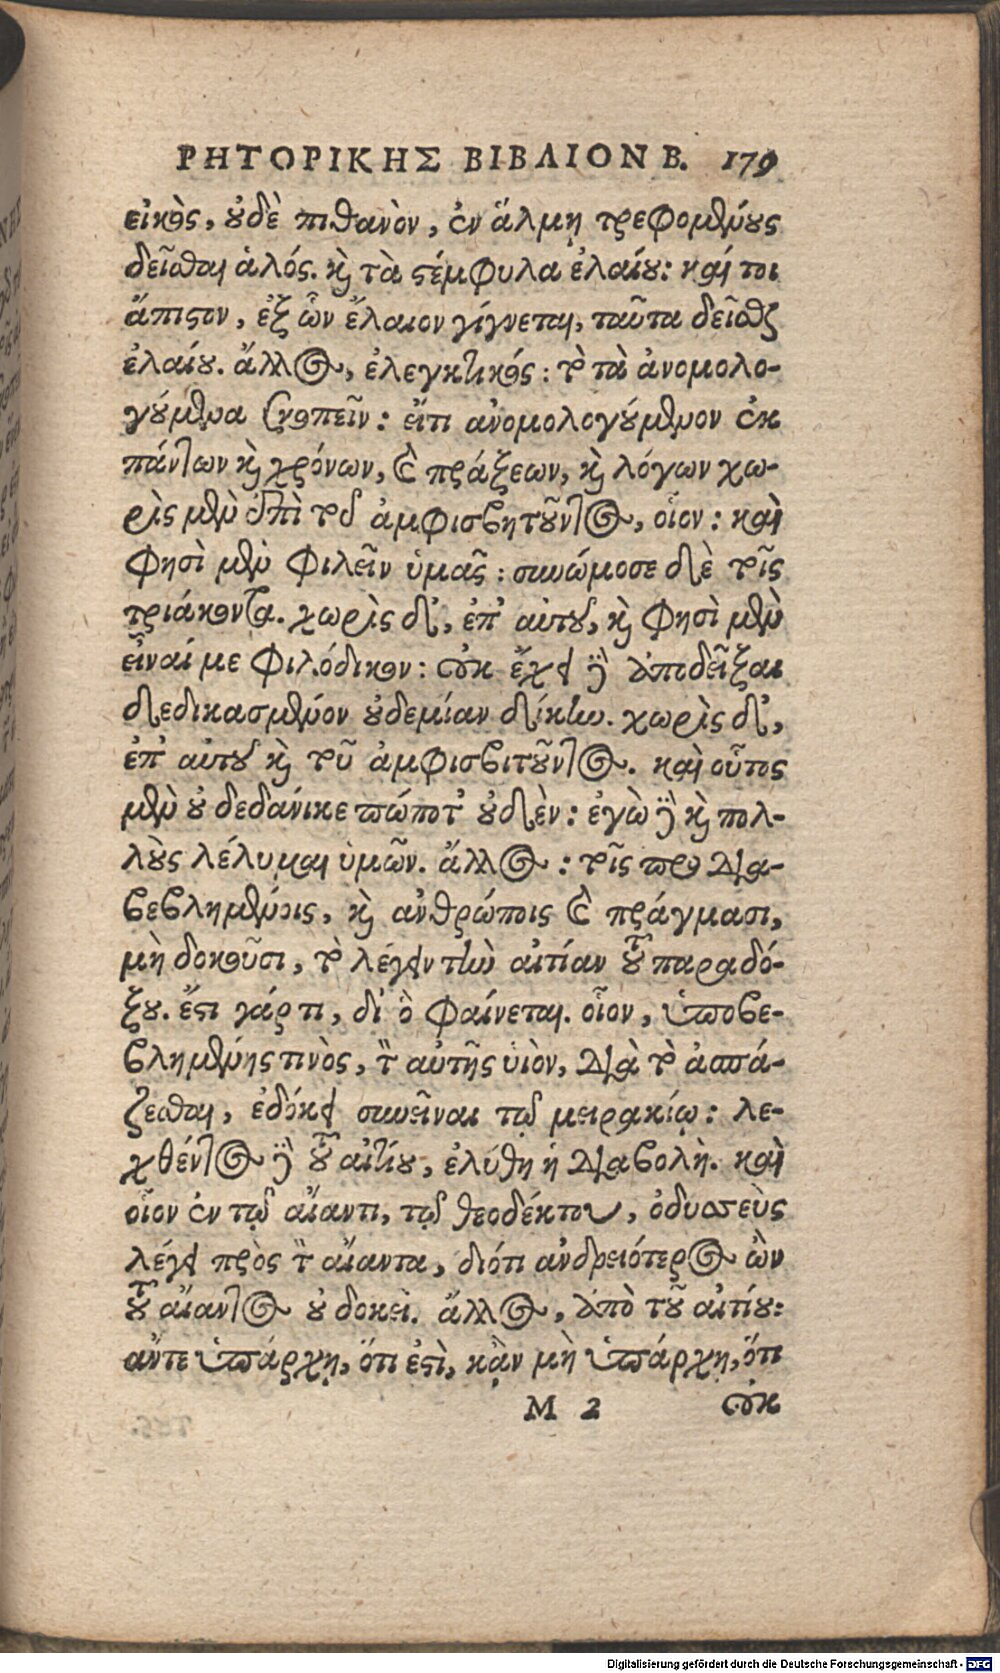 ΡΗΤΟΡΙΚΗΣ ΒΙΒΛΙΟΝ Β. 179
εἰκὸς, οὐδὲ πιθανὸν, ἐν ἅλμῃ τρεφομένους
δεῖσθαι ἁλός. καὶ τὰ στέμφυλα ἐλαίου: καί τοι
ἄπιστον, ἐξ ὧν ἔλαιον γίγνεται, ταῦτα δεῖσθαι
ἐλαίου. ἄλλος, ἐλεγκτικός: τὸ τὰ ἀνομολο-
γούμενα σκοπεῖν: εἴτι ἀνομολογούμενον ἐκ
πάντων καὶ χρόνων, καὶ πράξεων, καὶ λόγων χω-
ρὶς μὲν ἐπὶ τοῦ ἀμφισβητοῦντος, οἷον: καὶ
φησὶ μὲν φιλεῖν ὑμᾶς: συνώμοσε δὲ τοῖς
τριάκοντα. χωρὶς δ', ἐπ' αὐτοῦ, καὶ φησὶ μὲν
εἶναί με φιλόδικον: οὐκ ἔχει δὲ ἀποδεῖξαι
δεδικασμένον οὐδεμίαν δίκην. χωρὶς δ',
ἐπ' αὐτοῦ καὶ τοῦ ἀμφισβιτοῦντος. καὶ οὗτος
μὲν οὐ δεδάνικε πώποτ' οὐδέν: ἐγὼ δὲ καὶ πολ-
λοὺς λέλυμαι ὑμῶν. ἄλλος: τοῖς προδια-
βεβλημένοις, καὶ ἀνθρώποις καὶ πράγμασι,
μὴ δοκοῦσι, τὸ λέγειν τὴν αἰτίαν τοῦ παραδό-
ξου. ἔστι γάρ τι, δι' ὃ φαίνεται. οἷον, ὑποβε-
βλημένης τινὸς, τὸν αὐτῆς υἱὸν, διὰ τὸ ἀσπά-
ζεσθαι, ἐδόκει συνεῖναι τῷ μειρακίῳ: λε-
χθέντος δὲ τοῦ αἰτίου, ἐλύθη ἡ διαβολή. καὶ
οἷον ἐν τῷ αἴαντι, τῷ θεοδέκτου, ὀδυσσεὺς
λέγει πρὸς τὸν αἴαντα, διότι ἀνδρειότερος ὢν
τοῦ αἴαντος οὐ δοκεῖ. ἄλλος, ἀπὸ τοῦ αἰτίου:
ἄντε ὑπάρχῃ, ὅτι ἐστὶ, κἂν μὴ ὑπάρχῃ, ὅτι
M 2 οὐκ
Digitalisierung gefördert durch die Deutsche Forschungsgemeinschaft - DFG